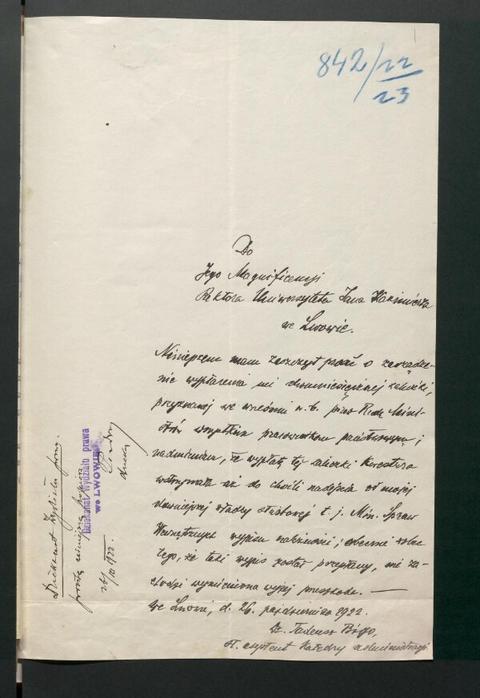 842/22
23
Do
Jego Magnificencji
Rektora Uniwersytetu Jana Kazimierza
we Lwowie.
Niniejszem mam zaszczyt prosić o zarządze-
nie wypłacenia mi dwumiesięcznej zaliczki,
przyznanej we wrześniu r. b. przez Radę Mini-
strów wszystkim pracownikom państwowym;
nadmieniam, że wypłatę tej zaliczki Kwestura
wstrzymała aż do chwili nadejścia od mojej
władzy służbowej t. j. Min. Spraw
Wewnętrznych wypisu należności; obecnie wobec
tego, że taki wypis został przysłany, nie za-
chodzi wymieniona wyżej przeszkoda. —
We Lwowie, d. 26. października 1922.
Dr. Tadeusz
st. asystent Katedry administracji
Dziekanat Wydziału praw.
Dziekanat Wydziału prawa
we LWOWIE